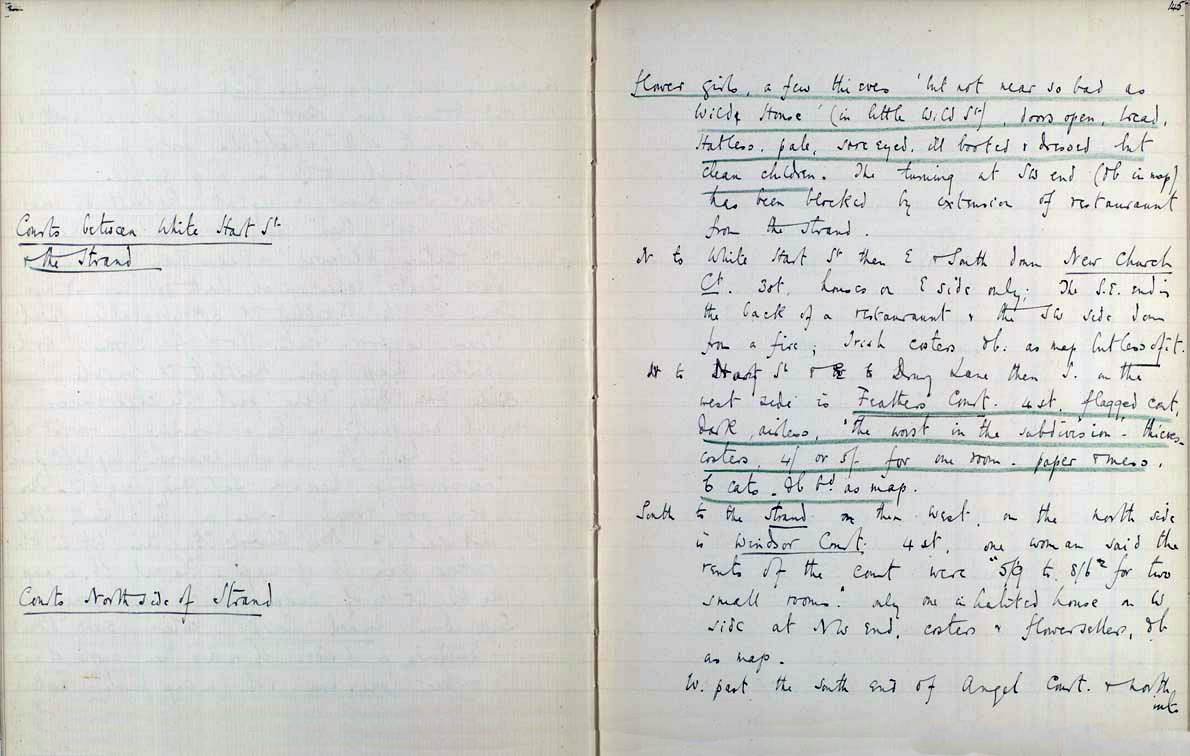 145
flower girls, a few thieves 'but not near so bad as
Wilde House' (in little Wild St), doors open, bread,
Hatless, pale, sore eyed, ill booted & dressed but
clean children. The turning at SW end (db in map)
has been blocked by extension of restauraunt
from the Strand.
Courts between White Hart St
& the Strand
N. to White Hart St then E & South down New Church
Ct. 3 st. houses on E side only; The S.E. end is
the back of a restauraunt & the SW side down
from a fire; Irish costers, db. as map but less of it.
N to Hart St & to Drury Lane then S. on the
west side is Feathers Court. 4 st. flagged court,
dark, airless, "the worst in the subdivision" thieves
costers, 4/ or 5/- for one room. paper & mess,
6 cats. db as map.
South to the Strand then West, on the north side
Courts North side of Strand
is Windsor Court, 4 st, one woman said the
rents of the court were "5/9 to 8/6 for two
small rooms." only one inhabited house on W
side at NW end, costers & flowersellers, db
as map.
W. past the South end of Angel Court. & north
into